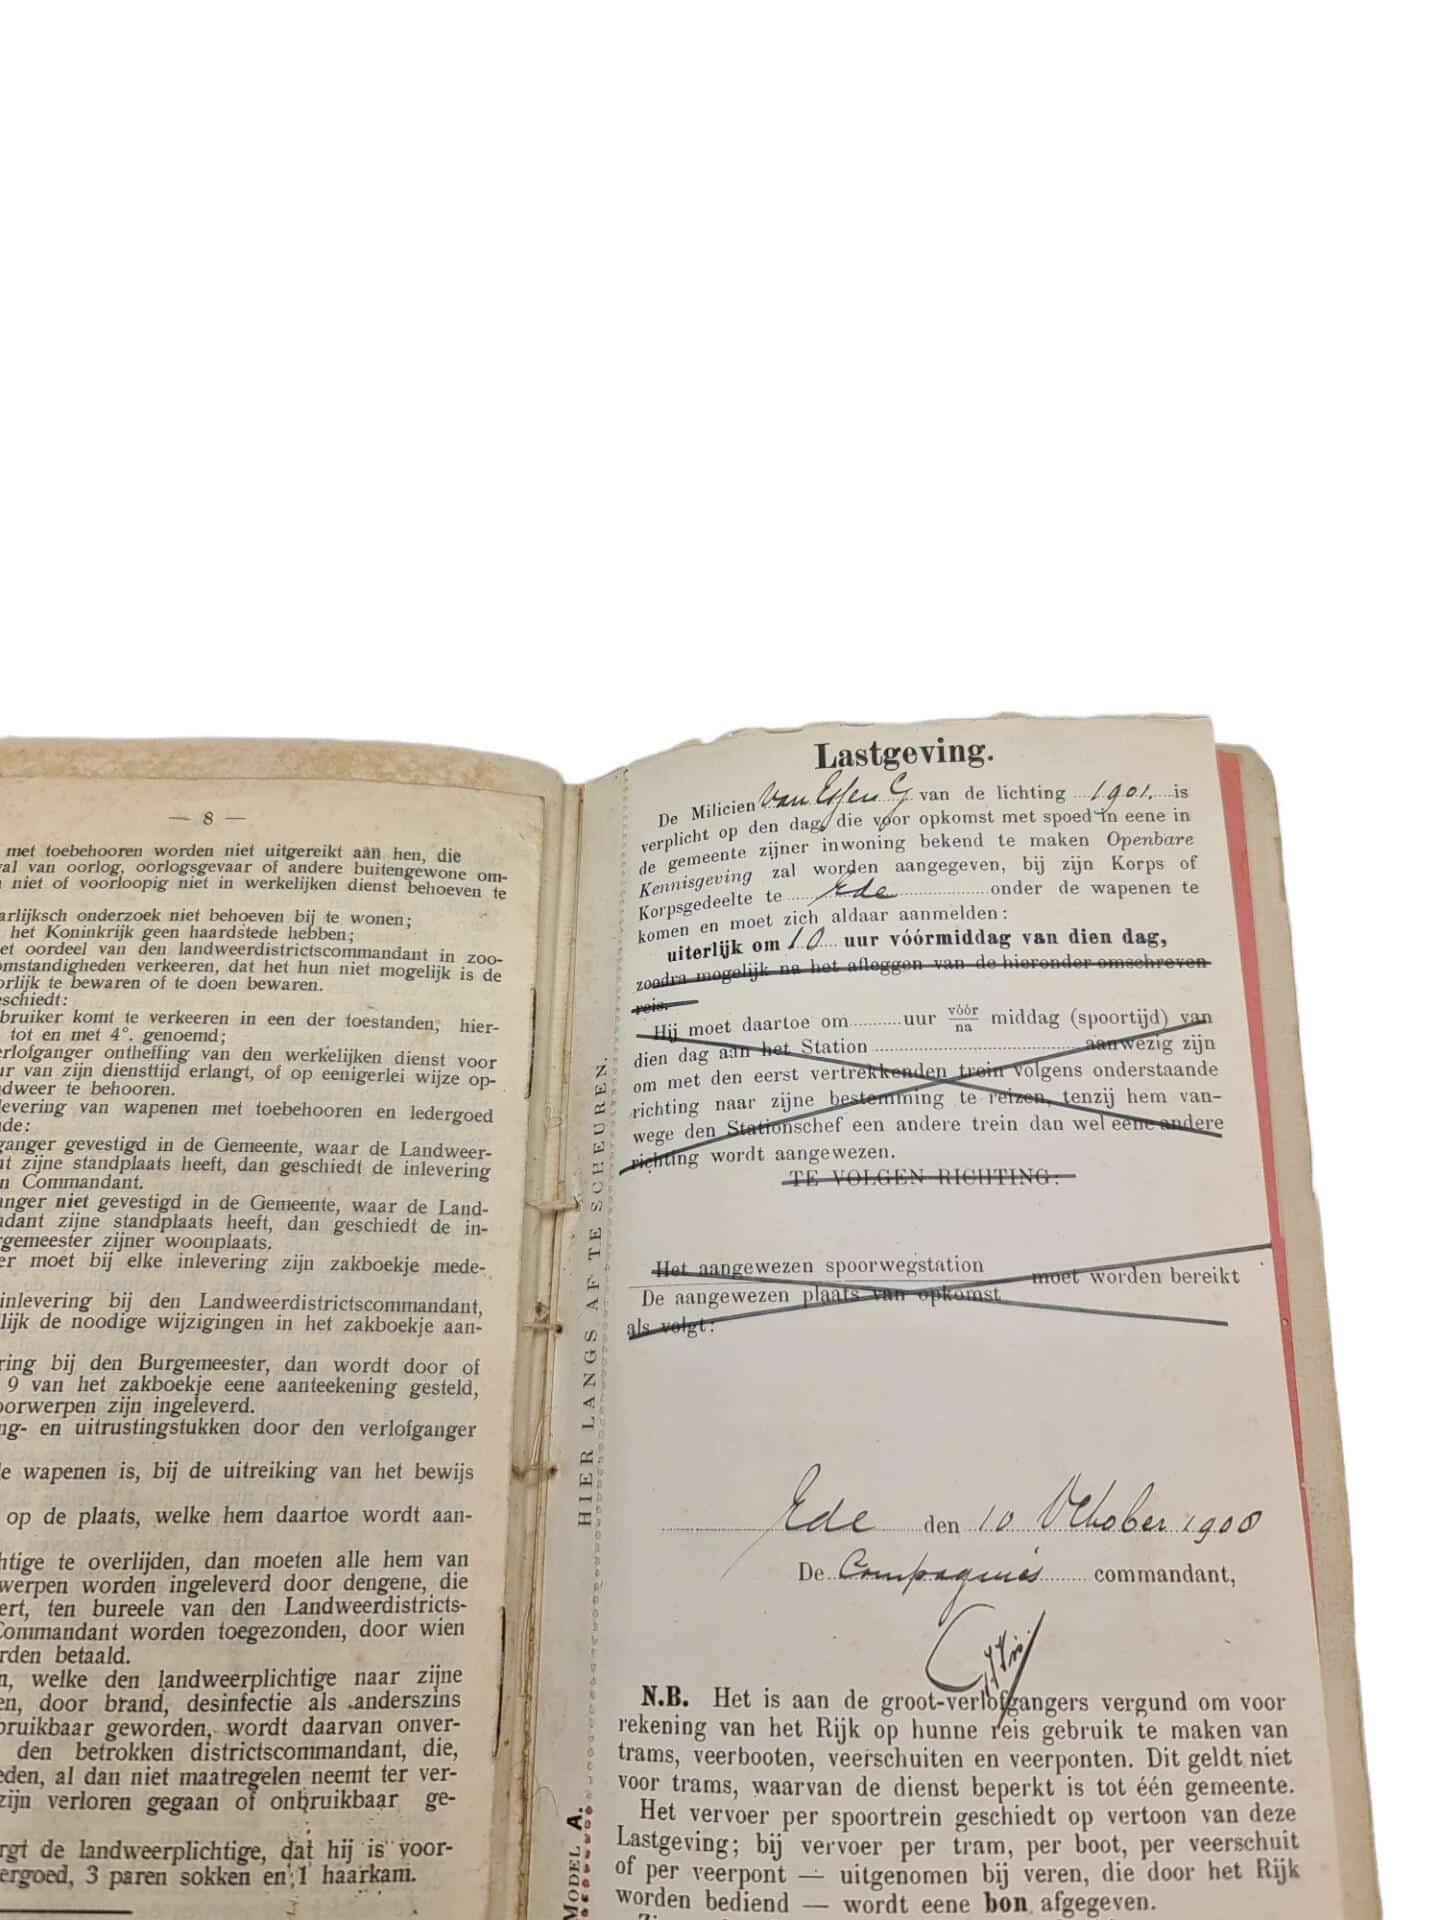 — 8 —
met toebehooren worden niet uitgereikt aan hen, die
val van oorlog, oorlogsgevaar of andere buitengewone om-
niet of voorloopig niet in werkelijken dienst behoeven te
arlijksch onderzoek niet behoeven bij te wonen;
het Koninkrijk geen haardstede hebben;
et oordeel van den landweerdistrictscommandant in zoo-
omstandigheden verkeeren, dat het hun niet mogelijk is de
orlijk te bewaren of te doen bewaren.
eschiedt:
bruiker komt te verkeeren in een der toestanden, hier-
tot en met 4°. genoemd;
erlofganger ontheffing van den werkelijken dienst voor
ur van zijn diensttijd erlangt, of op eenigerlei wijze op-
ndweer te behooren.
levering van wapenen met toebehooren en ledergoed
nde:
ganger gevestigd in de Gemeente, waar de Landweer-
nt zijne standplaats heeft, dan geschiedt de inlevering
n Commandant.
anger niet gevestigd in de Gemeente, waar de Land-
ndant zijne standplaats heeft, dan geschiedt de in-
rgemeester zijner woonplaats.
er moet bij elke inlevering zijn zakboekje mede-
inlevering bij den Landweerdistrictscommandant,
lijk de noodige wijzigingen in het zakboekje aan-
ring bij den Burgemeester, dan wordt door of
9 van het zakboekje eene aanteekening gesteld,
oorwerpen zijn ingeleverd.
ng- en uitrustingstukken door den verlofganger
le wapenen is, bij de uitreiking van het bewijs
op de plaats, welke hem daartoe wordt aan-
htige te overlijden, dan moeten alle hem van
werpen worden ingeleverd door dengene, die
ert, ten bureele van den Landweerdistricts-
Commandant worden toegezonden, door wien
rden betaald.
n, welke den landweerplichtige naar zijne
en, door brand, desinfectie als anderszins
bruikbaar geworden, wordt daarvan onver-
den betrokken districtscommandant, die,
eden, al dan niet maatregelen neemt ter ver-
zijn verloren gegaan of onbruikbaar ge-
rgt de landweerplichtige, dat hij is voor-
ergoed, 3 paren sokken en 1 haarkam.
HIER LANGS AF TE SCHEUREN.
MODEL A.
Lastgeving.
De Milicien Van Essen G van de lichting 1901. is
verplicht op den dag, die voor opkomst met spoed in eene in
de gemeente zijner inwoning bekend te maken Openbare
Kennisgeving zal worden aangegeven, bij zijn Korps of
Korpsgedeelte te Ede onder de wapenen te
komen en moet zich aldaar aanmelden:
uiterlijk om 10 uur vóórmiddag van dien dag,
zoodra mogelijk na het afleggen van de hieronder omschreven
reis.
Hij moet daartoe om uur vóór/na middag (spoortijd) van
dien dag aan het Station aanwezig zijn
om met den eerst vertrekkenden trein volgens onderstaande
richting naar zijne bestemming te reizen, tenzij hem van-
wege den Stationschef een andere trein dan wel eene andere
richting wordt aangewezen.
TE VOLGEN RICHTING:
Het aangewezen spoorwegstation
De aangewezen plaats van opkomst moet worden bereikt
als volgt:
Ede den 10 October 1908
De Compagnies commandant,
N.B. Het is aan de groot-verlofgangers vergund om voor
rekening van het Rijk op hunne reis gebruik te maken van
trams, veerbooten, veerschuiten en veerponten. Dit geldt niet
voor trams, waarvan de dienst beperkt is tot één gemeente.
Het vervoer per spoortrein geschiedt op vertoon van deze
Lastgeving; bij vervoer per tram, per boot, per veerschuit
of per veerpont — uitgenomen bij veren, die door het Rijk
worden bediend — wordt eene bon afgegeven.